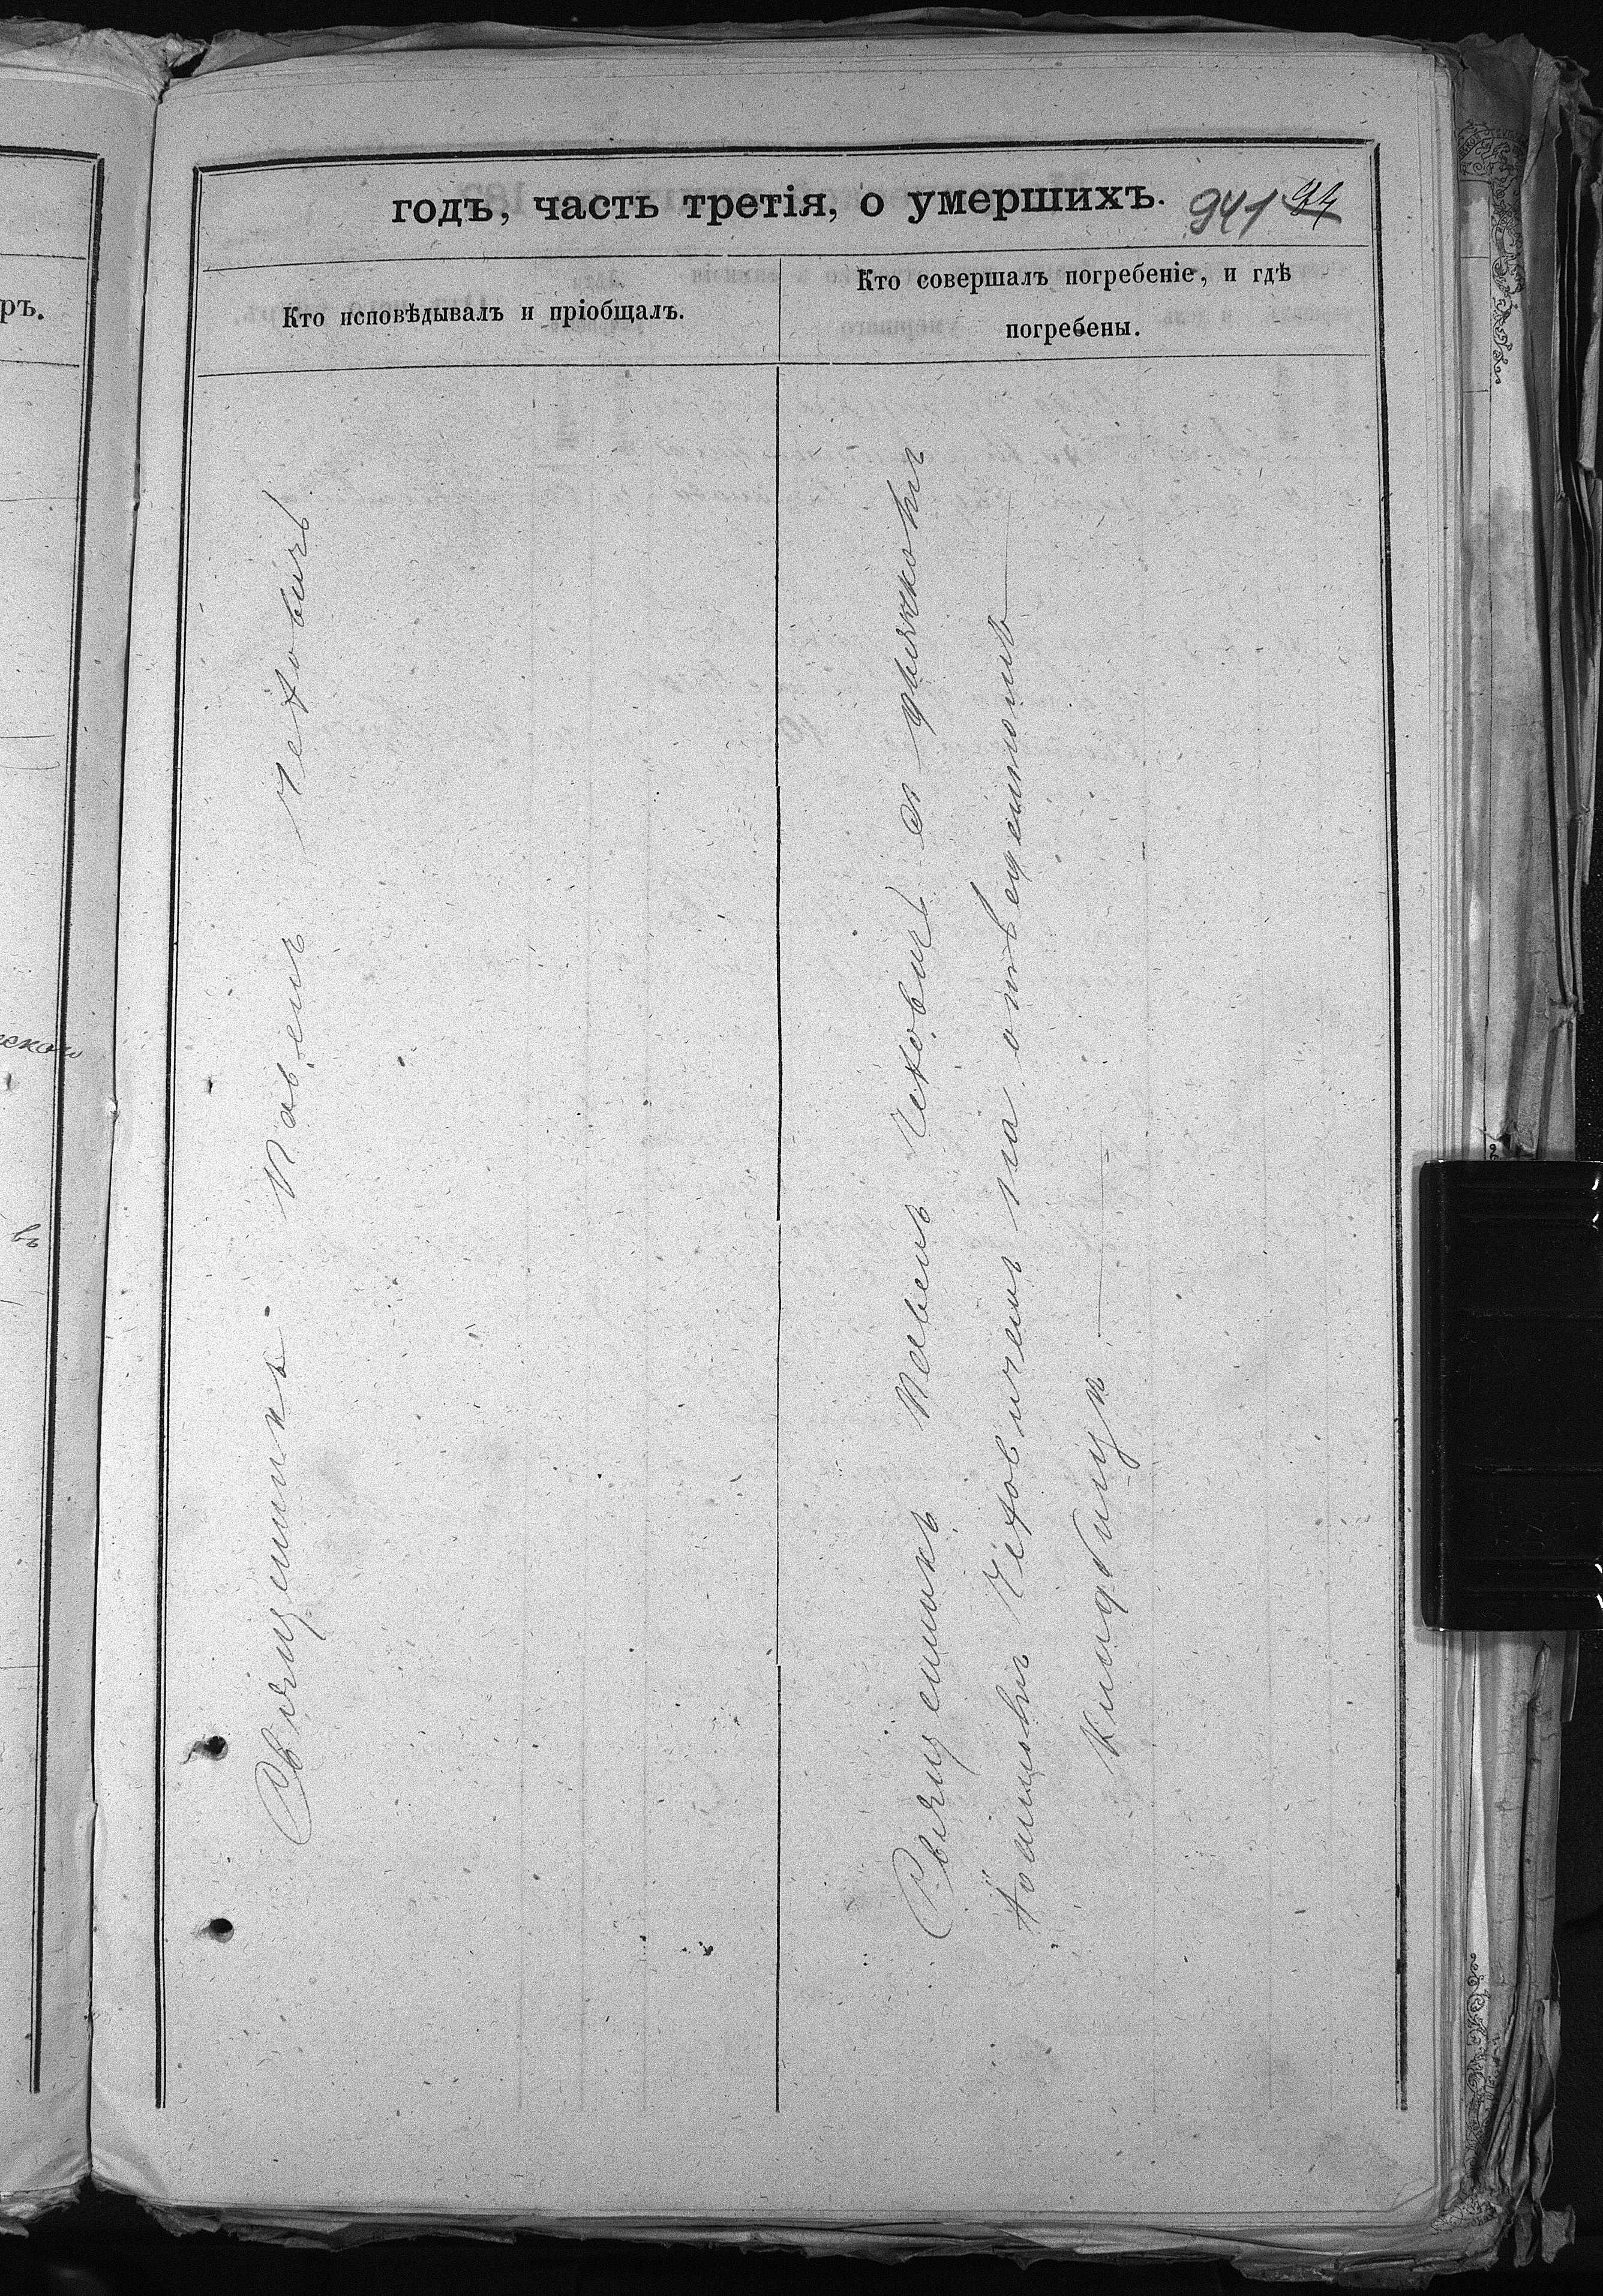 годъ, часть третія, о умершихъ.
941 94
Кто исповѣдывалъ и пріобщалъ.
Кто совершалъ погребеніе, и гдѣ
погребены.
Священникъ Павелъ Чеховичъ
Священникъ Павелъ Чеховичъ съ дьячкомъ
Чеховичемъ на отведенномъ
Кладбищѣ
ръ.
въ